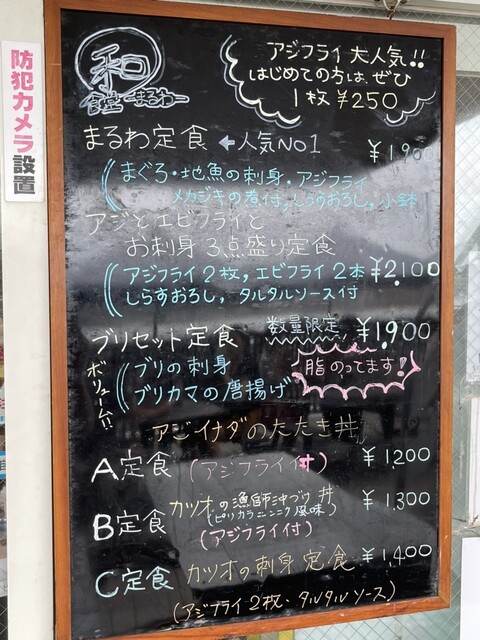 防犯カメラ設置
和
食堂 まるわ
アジフライ大人気!!
はじめての方は、ぜひ
1枚 ¥250
まるわ定食 ←人気NO1 ¥1,900
まぐろ・地魚の刺身・アジフライ
メカジキの煮付,しらすおろし,小鉢
アジとエビフライと
お刺身3点盛り定食
アジフライ2枚,エビフライ2本 ¥2,100
しらすおろし,タルタルソース付
ブリセット定食 数量限定, ¥1,900
ボリューム!!
ブリの刺身
ブリカマの唐揚げ
脂のってます!
アジイナダのたたき丼
A定食 (アジフライ付) ¥1,200
カツオの漁師沖づけ丼 ¥1,300
B定食 (ピリカラニンニク風味)
(アジフライ付)
C定食 カツオの刺身定食 ¥1,400
(アジフライ2枚・タルタルソース)